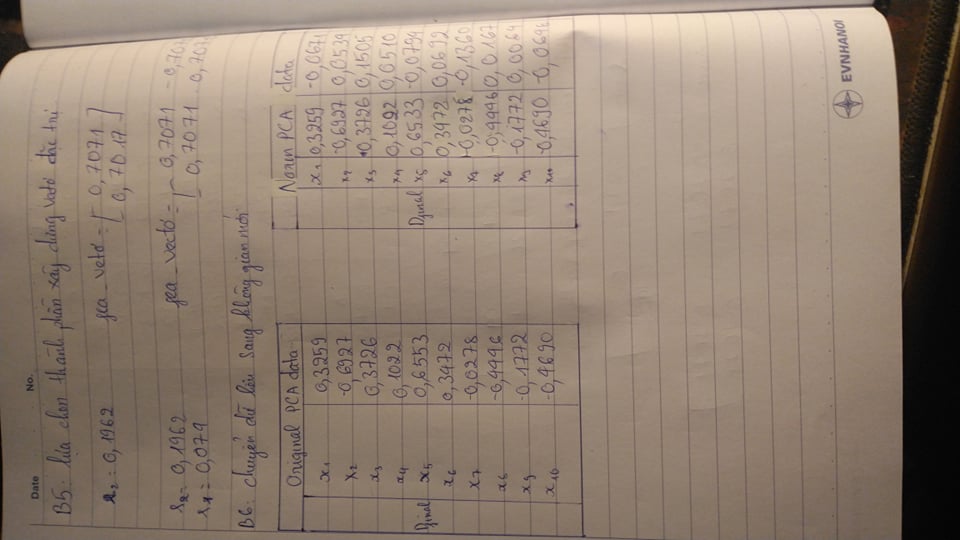 Date No.
B5: lựa chọn thành phần xây dựng vectơ đặc trưng
λ2 = 0,1962 fea_vectơ = [ 0,7071 ]
[ 0,7017 ]
λ2 = 0,1962 fea_vectơ = [ -0,7071 -0,7071
λ1 = 0,079 [ 0,7071 -0,7071
B6: chuyển dữ liệu sang không gian mới
Original PCA data
x1 0,3259
x2 -0,6927
x3 0,3726
x4 0,1022
Dfinal x5 0,6553
x6 0,3472
x7 -0,0278
x8 -0,4446
x9 -0,1772
x10 -0,4690
Norm PCA data
x1 0,3259 -0,0671
x2 -0,6927 0,0534
x3 0,3726 0,1505
x4 0,1022 0,0510
Dfinal x5 0,6533 -0,0794
x6 0,3472 0,0692
x7 -0,0278 -0,1360
x8 -0,4446 0,0167
x9 -0,1772 0,0064
x10 -0,4690 -0,0646
EVNHANOI